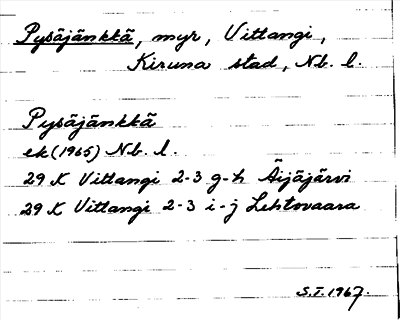 Pysäjänkkä, myr, Vittangi,
Kiruna stad, Nb. l.
Pysäjänkkä
ek (1965) Nb. l.
29 K Vittangi 2-3 g-h Äijäjärvi
29 K Vittangi 2-3 i-j Lehtovaara
S.I. 1967.